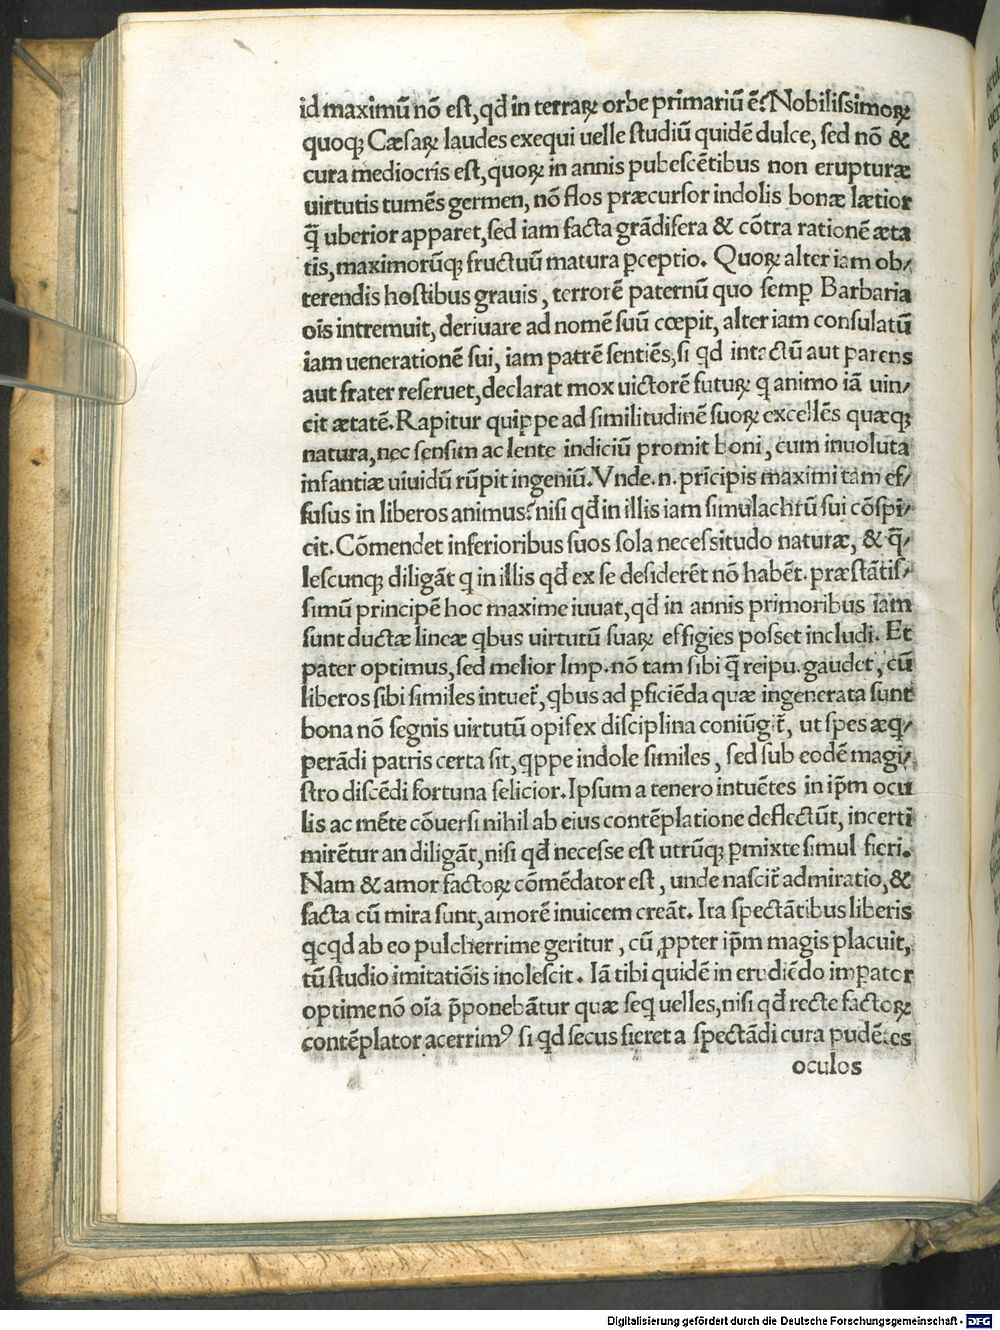 id maximū nō est, qđ in terraꝝ orbe primariū ē? Nobilissimoꝝ
quoqꝫ Cæsaꝝ laudes exequi uelle studiū quidē dulce, sed nō &
cura mediocris est, quoꝝ in annis pubescētibus non erupturæ
uirtutis tumēs germen, nō flos præcursor indolis bonæ lætior
q̄ uberior apparet, sed iam facta grādifera & cōtra rationē æta
tis, maximorūqꝫ fructuū matura ꝑceptio. Quoꝝ alter iam ob/
terendis hostibus grauis, terrorē paternū quo semꝑ Barbaria
oīs intremuit, deriuare ad nomē suū cœpit, alter iam consulatū
iam uenerationē sui, iam patrē sentiēs, si qd intactū aut parens
aut frater reseruet, declarat mox uictorē futuꝝ q animo iā uin/
cit ætatē. Rapitur quippe ad similitudinē suoꝝ excellēs quæqꝫ
natura, nec sensim ac lente indiciū promit boni, cum inuoluta
infantiæ uiuidū rūpit ingeniū. Vnde .n. prīcipis maximi tam ef/
fusus in liberos animus? nisi qđ in illis iam simulachrū sui cōspi/
cit. Cōmendet inferioribus suos sola necessitudo naturæ, & q̄/
lescunqꝫ diligāt q in illis qđ ex se desiderēt nō habēt. præstātis/
simū principē hoc maxime iuuat, qđ in annis primoribus iam
sunt ductæ lineæ qbus uirtutū suaꝝ effigies posset includi. Et
pater optimus, sed melior Imp. nō tam sibi q̄ reipu. gaudet, cū
liberos sibi similes intuet᷑, qbus ad ꝑficiēda quæ ingenerata sunt
bona nō segnis uirtutū opifex disciplina coniūgit᷑, ut spes æq/
perādi patris certa sit, qppe indole similes, sed sub eodē magi/
stro discēdi fortuna felicior. Ipsum a tenero intuētes in ip̄m ocu
lis ac mēte cōuersi nihil ab eius contēplatione deflectūt, incerti
mirētur an diligāt, nisi qđ necesse est utrūqꝫ ꝑmixte simul fieri.
Nam & amor factoꝝ cōmēdator est, unde nascit᷑ admiratio, &
facta cū mira sunt, amorē inuicem creāt. Ita spectātibus liberis
qcqd ab eo pulcherrime geritur, cū ꝓpter ip̄m magis placuit,
tū studio imitatiōis inolescit. Iā tibi quidē in erudiēdo imꝑator
optime nō oīa p̄ponebātur quæ seq uelles, nisi qđ recte factoꝝ
contēplator acerrimꝰ si qd secus fieret a spectādi cura pudētes
oculos
Digitalisierung gefördert durch die Deutsche Forschungsgemeinschaft - DFG